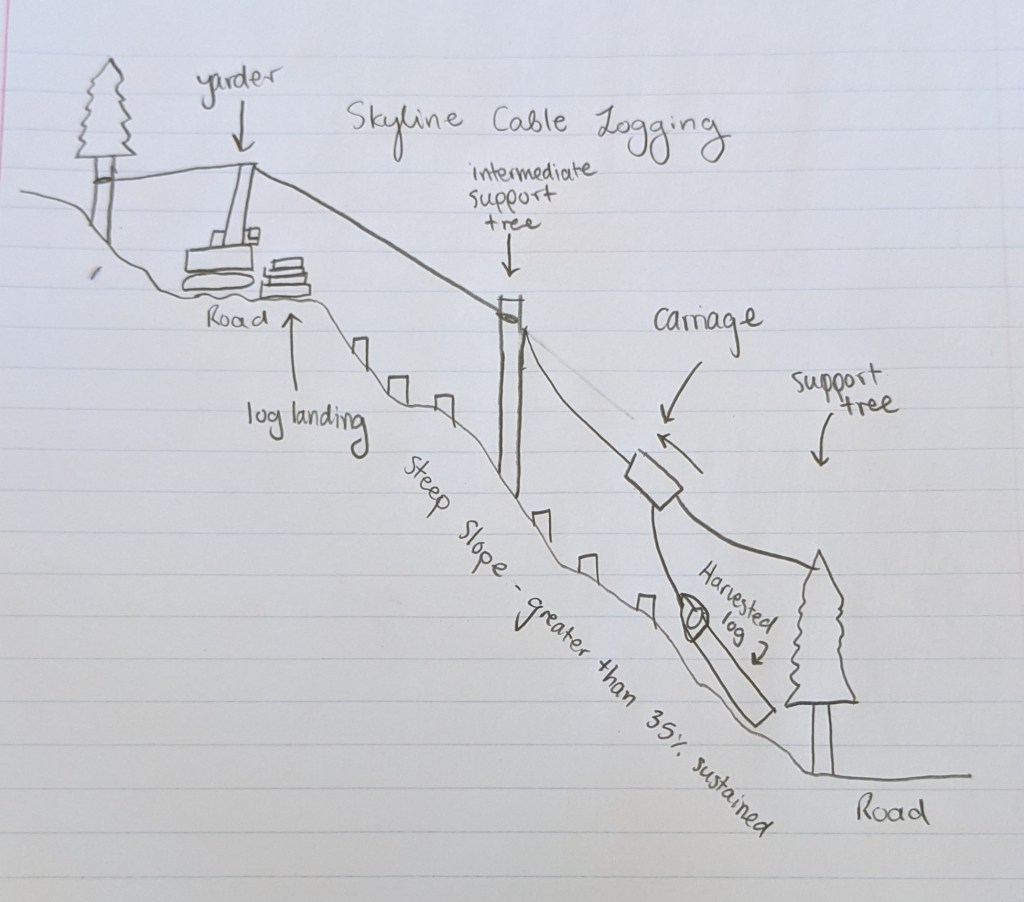 yarder
Skyline Cable Logging
intermediate
support
tree
Carriage
support
tree
Road
log landing
Steep Slope - greater than 35% sustained
Harvested
log
Road